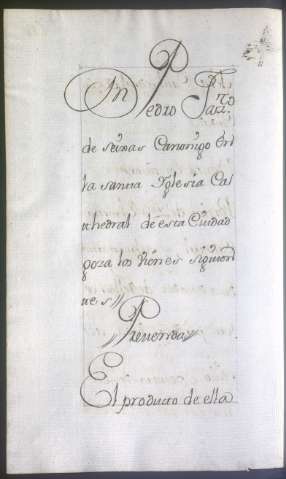 Dn Pedro
de Canonigo En
la santa Yglesia Ca
thedral de esta Ciudad
goza los vienes siguien
tes //
// Prevenda //
El producto de ella